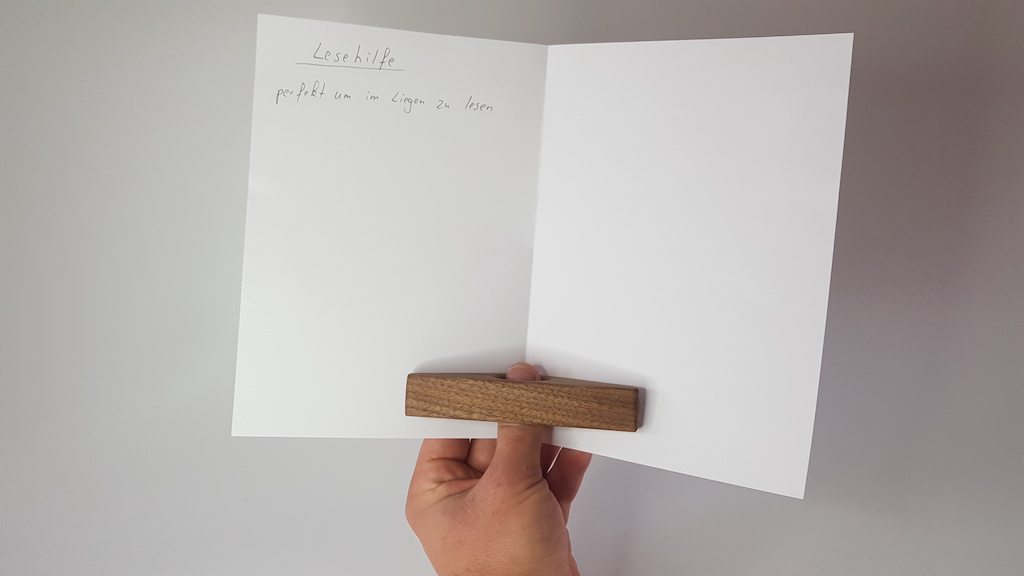 Lesehilfe
perfekt um im Liegen zu lesen